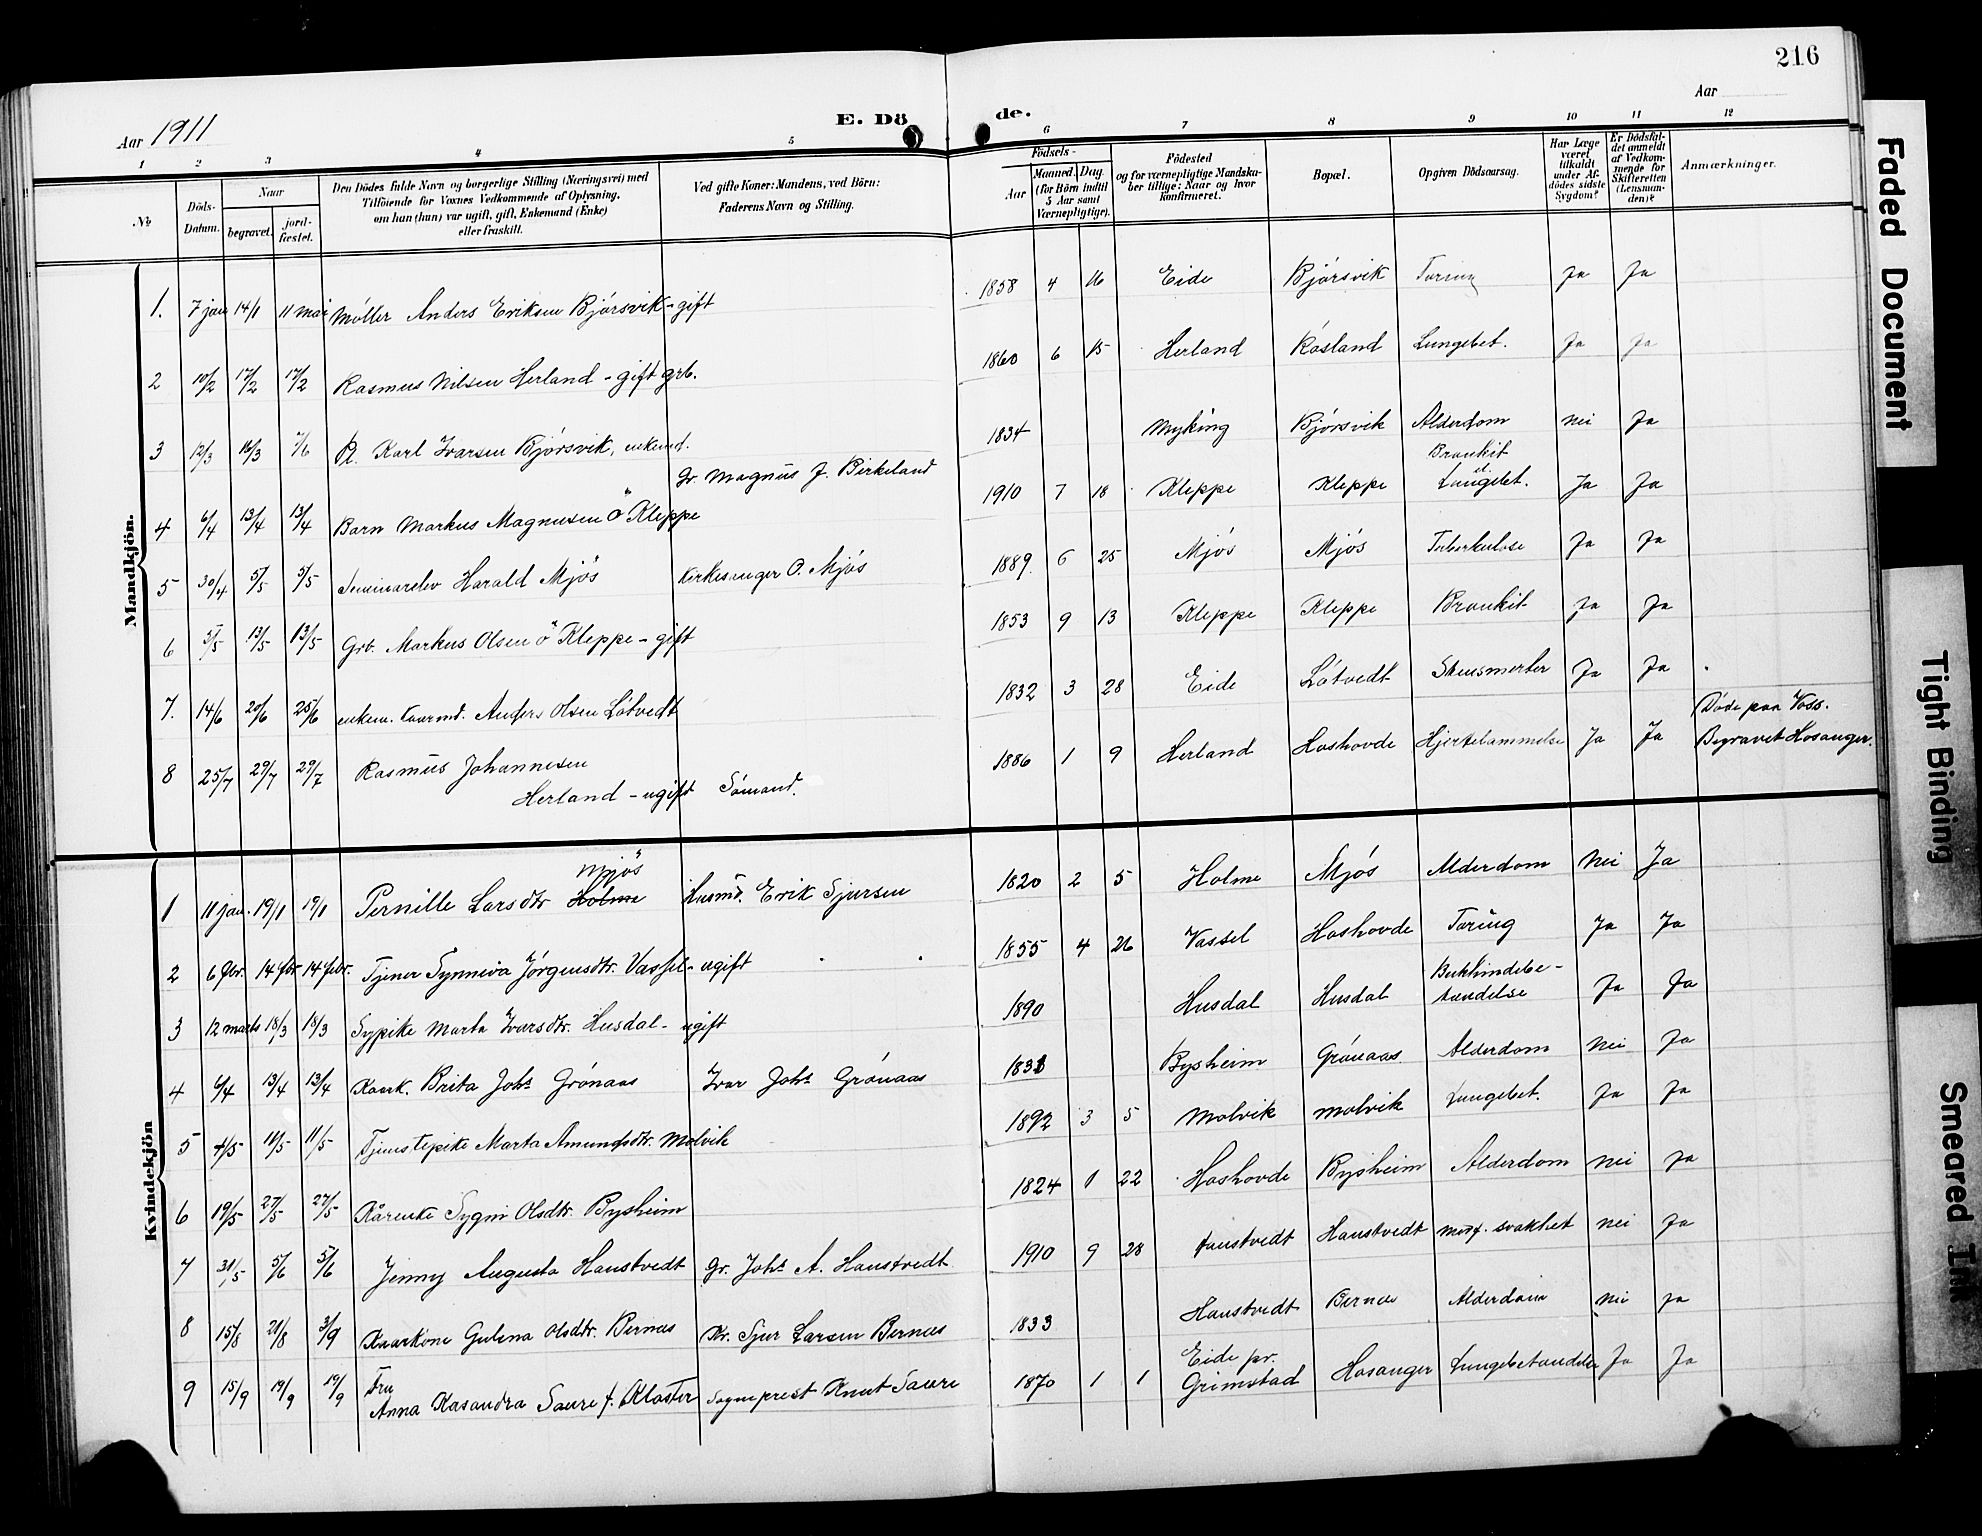 216
Aar 1911
E. Dö
de.
Aar
1 2 3 4 5
6 7 8 9 10 11 12
№
Döds-Datum.
Naar
begravet.
jord-fæstet.
Den Dödes fulde Navn og borgerlige Stilling (Næringsvei) med
Tilföiende for Voxnes Vedkommende af Oplysning,
om han (hun) var ugift, gift, Enkemand (Enke)
eller fraskilt.
Ved gifte Koner: Mandens, ved Börn:
Faderens Navn og Stilling.
Födsels-
Aar
Maaned. Dag.
(for Börn indtil
5 Aar samt
Værnepligtige).
Födested
og for værnepligtige Mandska-
ber tillige: Naar og hvor
konfirmeret.
Bopæl.
Opgiven Dödsaarsag.
Har Læge
været
tilkaldt
under Af-
dödes sidste
Sygdom?
Er Dödsfal-
det anmeldt
af Vedkom-
mende for
Skifteretten
(Lensman-
den)?
Anmærkninger.
Mandkjön.
1. 7 jan 14/1 11 mai Møller Anders Eriksen Bjørsvik - gift 1858 4 16 Eide Bjørsvik Tæring Ja Ja
2 10/2 17/2 17/2 Rasmus Nilsen Herland - gift grb. 1860 6 15 Herland Røsland Lungebet. Ja Ja
3 12/3 16/3 7/6 Karl Ivarsen Bjørsvik, enkemd. 1834 Myking Bjørsvik Alderdom Nei Ja
4 6/4 13/4 13/4 Barn Markus Magnusen Ö Kleppe Gr. Magnus J. Birkeland 1910 7 18 Kleppe Kleppe Bronkit Lungebet. Ja Ja
5 30/4 5/5 5/5 Seminarelev Harald Mjös Kirkesanger O. Mjøs 1889 6 25 Mjøs Mjøs Tuberkulose Ja Ja
6 5/5 13/5 13/5 Grb. Markus Olsen Ö Kleppe - gift 1853 9 13 Kleppe Kleppe Bronkit Ja Ja
7. 14/6 20/6 25/6 enkem. Kaarmd. Anders Olsen Løtvedt 1832 3 28 Eide Løtvedt Stensmerter Ja Ja
8 25/7 29/7 29/7 Rasmus Johannesen
Herland - ugift Sømand. 1886 1 9 Herland Hoshovde Hjertelammelse Ja Ja Døde paa Voss.
Begravet Hosanger.
Kvindekjön
1 11 jan. 19/1 19/1 Pernille Larsdtr Holme Mjøs Husmd. Erik Sjursen 1820 2 5 Holme Mjøs Alderdom Nei Ja
2 6 fbr. 14 fbr 14 febr. Tjener Synneva Jørgensdtr. Vassel - ugift 1855 4 26 Vassel Hoshovde Tæring Ja Ja
3 12 marts 18/3 18/3 Sypike Marta Ivarsdtr. Husdal - ugift 1890 Husdal Husdal Bukhindebe-
tændelse Ja Ja
4 6/4 13/4 13/4 Kaark. Brita Johs Grønaas Ivar Johs Grønaas Bysheim Grønaas Alderdom Nei Ja
5 4/5 11/5 11/5 Tjenstepike Marta Amundsdtr. Molvik 1892 3 5 Molvik Molvik Lungebet. Ja Ja
6 19/5 27/5 27/5 Kårenke Sygni Olsdtr. Bysheim 1824 1 22 Hoshovde Bysheim Alderdom Nei Ja
7 5/6 5/6 Jenny Augusta Haustvedt Gr. Johs A. Haustvedt 1910 9 28 Haustvedt Haustvedt Medf. svakhet Nei Ja
8 15/8 21/8 3/9 Kaarkone Gulena Olsdtr. Bernes Kr. Sjur Larsen Bernes 1833 Haustvedt Bernes Alderdom Nei Ja
9 15/9 19/9 19/9 Fru
Anna Kasandra Saure f. Kloster Sogneprest Knut Saure 1870 1 1 Eide pr.
Grimstad Hosanger Lungebetændelse Ja Ja
Faded Document
Tight Binding
Smeared Ink